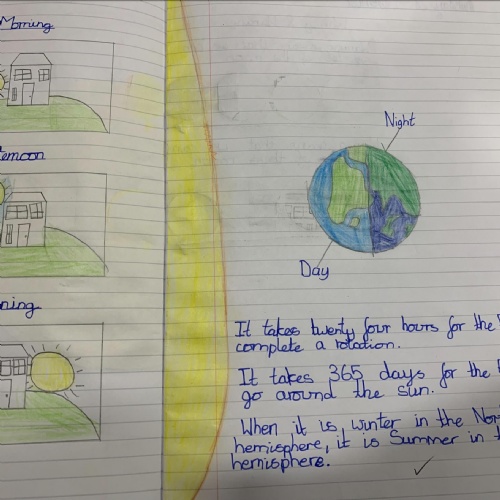 Morning
ternoon
ning
Night
Day
It takes twenty four hours for the
complete a rotation.
It takes 365 days for the
go around the sun.
When it is winter in the Nor
hemisphere, it is Summer in t
hemisphere.